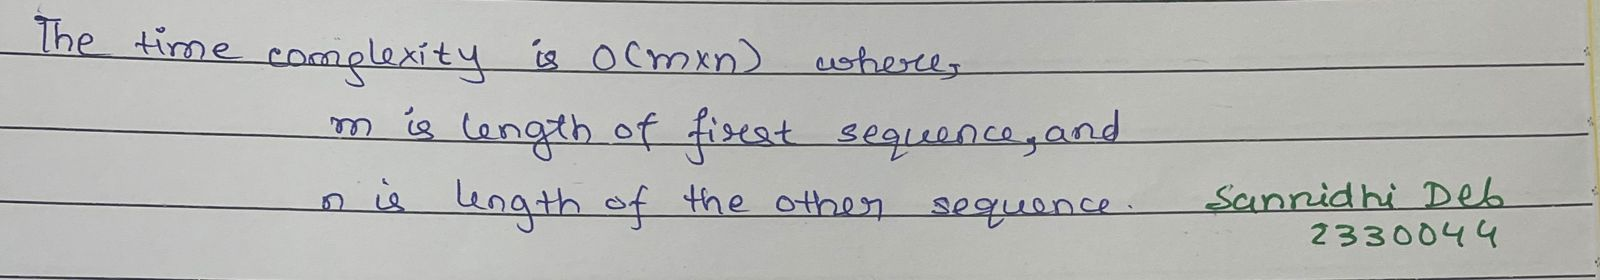 The time complexity is O(m×n) where,
m is length of first sequence, and
n is length of the other sequence. Sannidhi Deb
2330044